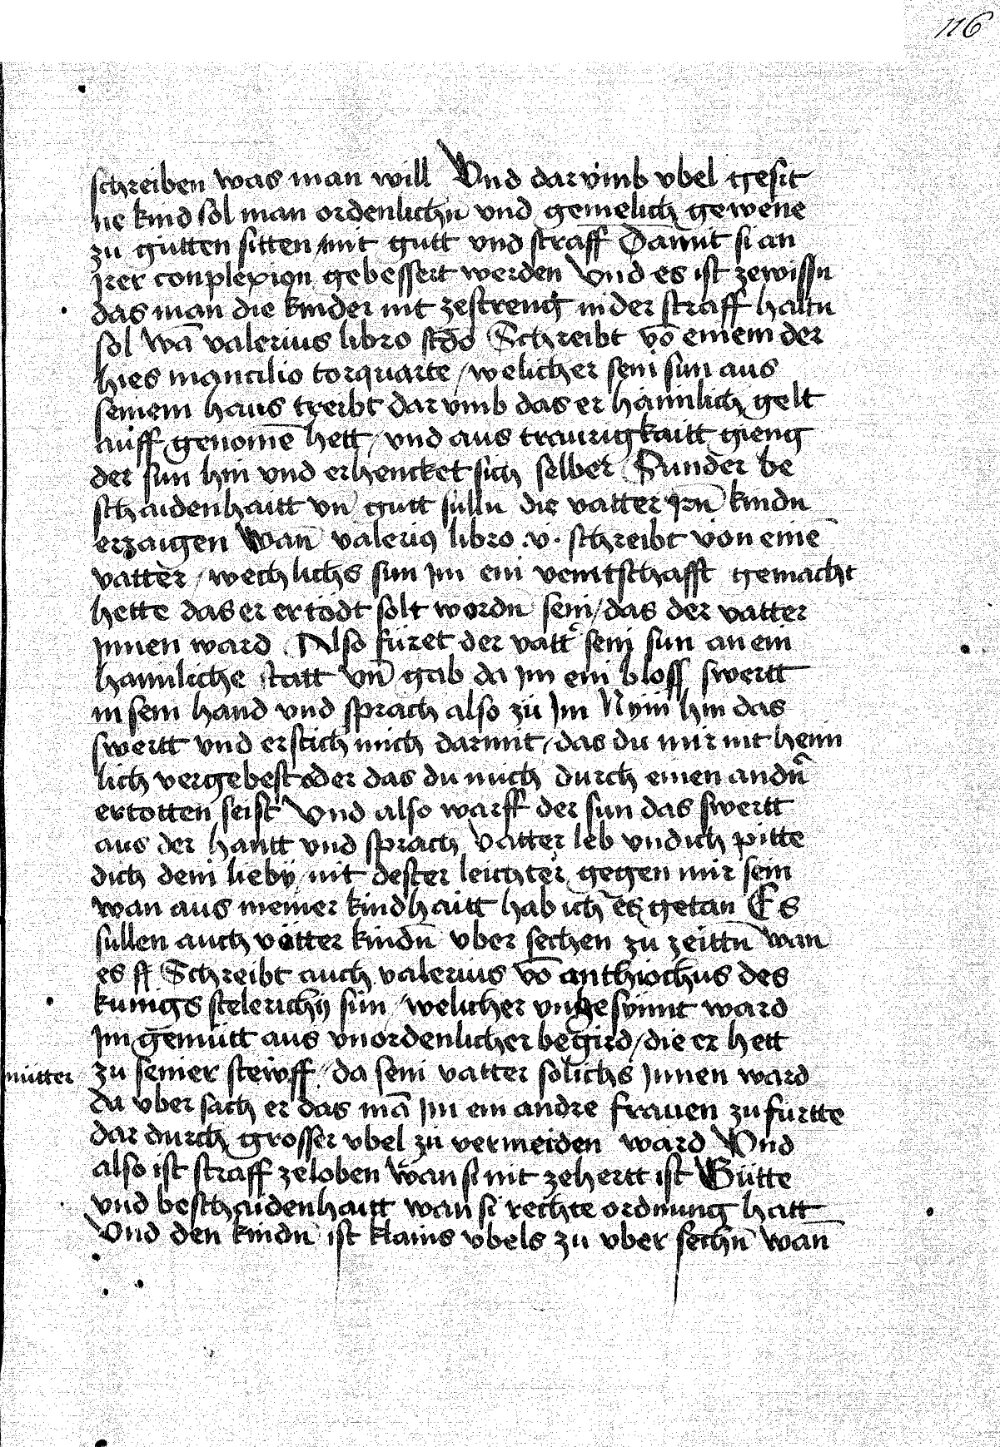 116
schreiben was man will Vnd dar vmb vbel gesit
ne kind sol man ordenlichn vnd gemelich gewene
zu gutten sitten / mit gutt vnd straff Damit si an
irer conplexion gebessert werden Vnd es ist zewissn
das man die kinder nit zestreng in der straff haltn
sol Wā valerius libro scdo Schreibt vō einem der
hies mancilio torquarte / welicher sein sun aus
seinem haus treibt dar vmb das er haimlich gelt
auff genomē hett / vnd aus traurigkaitt gieng
der sun hin vnd erhencket sich selber Sunder be
schaidenhaitt vn̄ gutt sulln die vatter irn̄ kindn
erzaigen Wan̄ valeriꝰ libro .v. schreibt von einē
vatter / wechlichs sun im ein veintschafft gemacht
hette das er ertodt solt wordn sein / das der vatter
innen ward Also füret der vatt̉ sein sun an ein
haimliche statt vn̄ gab da im ein bloss swertt
in sein hand vnd sprach also zu Im Nym hin das
swertt vnd erstich mich darmit / das du mir nit heim
lich vergebest oder das du mich durch einen andn̄
ertotten seist Vnd also warff der sun das swertt
aus der hantt vnd sprach Vatter leb vnd ich pitte
dich dein lieby / nit dester leichter gegen mir sein
wan aus meiner kindhaitt hab ich es getan Es
sullen auch vätter kindn̄ vber sechen zu zeittn̄ wan
es Schreibt auch valerius vō anthiochus des
kunigs stelerichy sun / welicher vngesunnt ward
Im gemütt aus vnordenlicher begird / die er hett
mutter zu seiner steiff / da sein vatter solichs Innen ward
da vber sach er das mā im ein andre frauen zu furtte
dar durch grosser vbel zu vermeiden ward Vnd
also ist straff zeloben wan si nit zehertt ist Gütte
vnd beschaidenhaitt wan si rechte ordnung hatt
Vnd den kindn̄ ist klains vbels zu vber sechn̄ wan̄